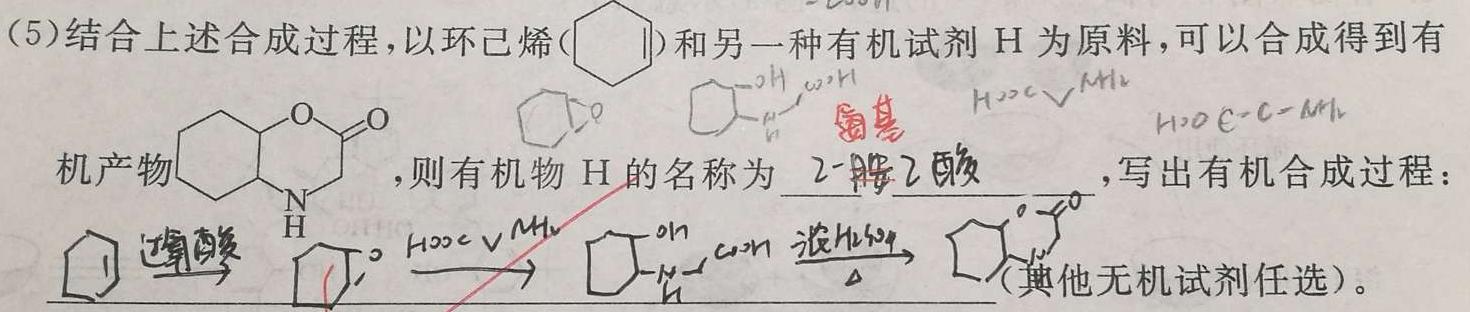 (5)结合上述合成过程,以环己烯( )和另一种有机试剂 H 为原料,可以合成得到有
OH COOH HOOC NH₂
O N H 氨基 HOOC-C-NH₂
机产物 O O N H ,则有机物 H 的名称为 2-胺乙酸 ,写出有机合成过程:
过氧酸 O HOOC NH₂ OH N H COOH 浓H₂SO₄ △ O O N (其他无机试剂任选)。